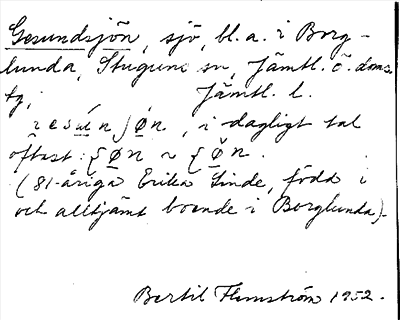 Gesundsjön, sjö, bl. a. i Borg-
lunda, Stuguns sn, Jämtl. ö. doms.
tg, Jämtl. l.
i dagligt tal
oftast: ʃø̄n ~ ʃø̆n.
(81-åriga Erika Linde, född i
och alltjämt boende i Borglunda).
Bertil Flemström 1952.